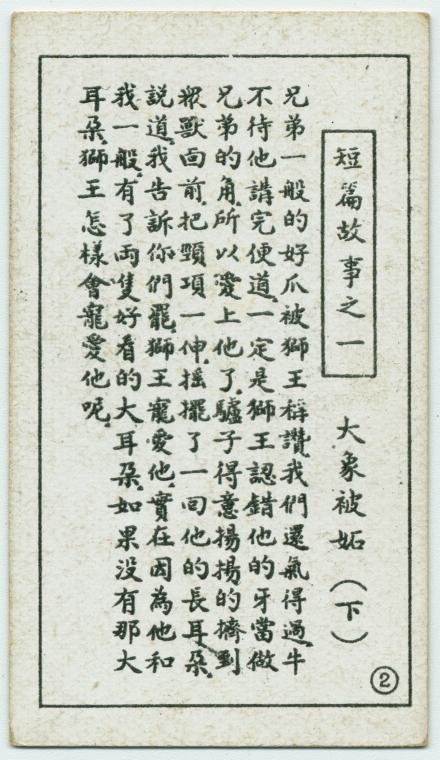 短篇故事之一
大象被妬（下）
兄弟一般的好爪被獅王稱讚我們還氣得過牛
不待他講完便道一定是獅王認錯他的牙當做
兄弟的角所以愛上他了驢子得意揚揚的擠到
衆獸面前把頸項一伸搖擺了一回他的長耳朵
說道我告訴你們罷獅王寵愛他實在因為他和
我一般有了兩隻好看的大耳朵如果没有那大
耳朵獅王怎樣會寵愛他呢
2